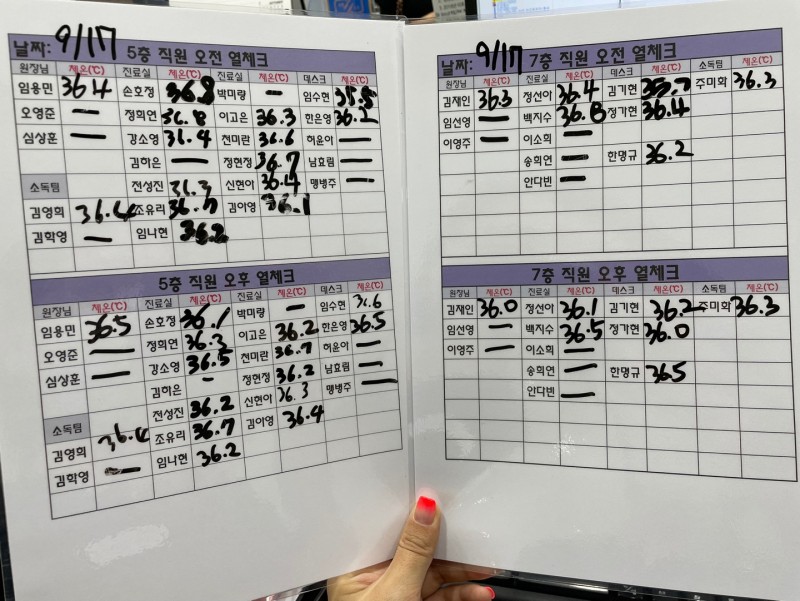 날짜: 9/17 5층 직원 오전 열체크
원장님 체온(℃) 진료실 체온(℃) 진료실 체온(℃) 데스크 체온(℃)
임용민 36.4 손호정 36.8 박미랑 — 임수현 35.5
오영준 — 정희연 36.8 이고은 36.3 한은영 36.2
심상훈 — 강소영 36.4 천미란 36.6 허윤아 —
김하은 — 정현정 36.7 남효림 —
소독팀 전성진 36.3 신현아 36.4 맹병주 —
김영희 36.4 조유리 36.7 김이영 36.1
김학영 — 임나현 36.2
5층 직원 오후 열체크
원장님 체온(℃) 진료실 체온(℃) 진료실 체온(℃) 데스크 체온(℃)
임용민 36.5 손호정 36.1 박미랑 — 임수현 36.6
오영준 — 정희연 36.3 이고은 36.2 한은영 36.5
심상훈 — 강소영 36.5 천미란 36.7 허윤아 —
김하은 - 정현정 36.2 남효림 —
소독팀 전성진 36.2 신현아 36.3 맹병주 —
김영희 36.4 조유리 36.7 김이영 36.4
김학영 — 임나현 36.2
날짜: 9/17 7층 직원 오전 열체크
원장님 체온(℃) 진료실 체온(℃) 데스크 체온(℃) 소독팀 체온(℃)
김재인 36.3 정선아 36.4 김기현 35.7 주미화 36.3
임선영 — 백지수 36.8 정가현 36.4
이영주 — 이소희 —
송희연 — 한명규 36.2
안다빈 —
7층 직원 오후 열체크
원장님 체온(℃) 진료실 체온(℃) 데스크 체온(℃) 소독팀 체온(℃)
김재인 36.0 정선아 36.1 김기현 36.2 주미화 36.3
임선영 — 백지수 36.5 정가현 36.0
이영주 — 이소희 —
송희연 — 한명규 36.5
안다빈 —